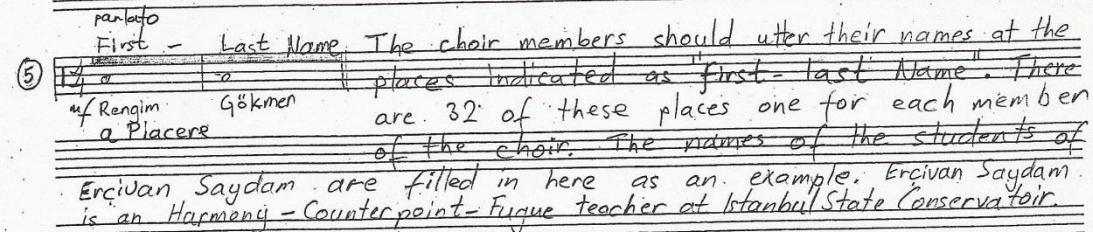 parlato
First - Last Name The choir members should utter their names at the
⑤ places indicated as "first-last Name". There
mf Rengim Gökmen are 32 of these places one for each member
a Placere of the choir. The names of the students of
Ercivan Saydam are filled in here as an example. Ercivan Saydam
is an Harmony-Counterpoint-Fugue teacher at Istanbul State Conservatoir.